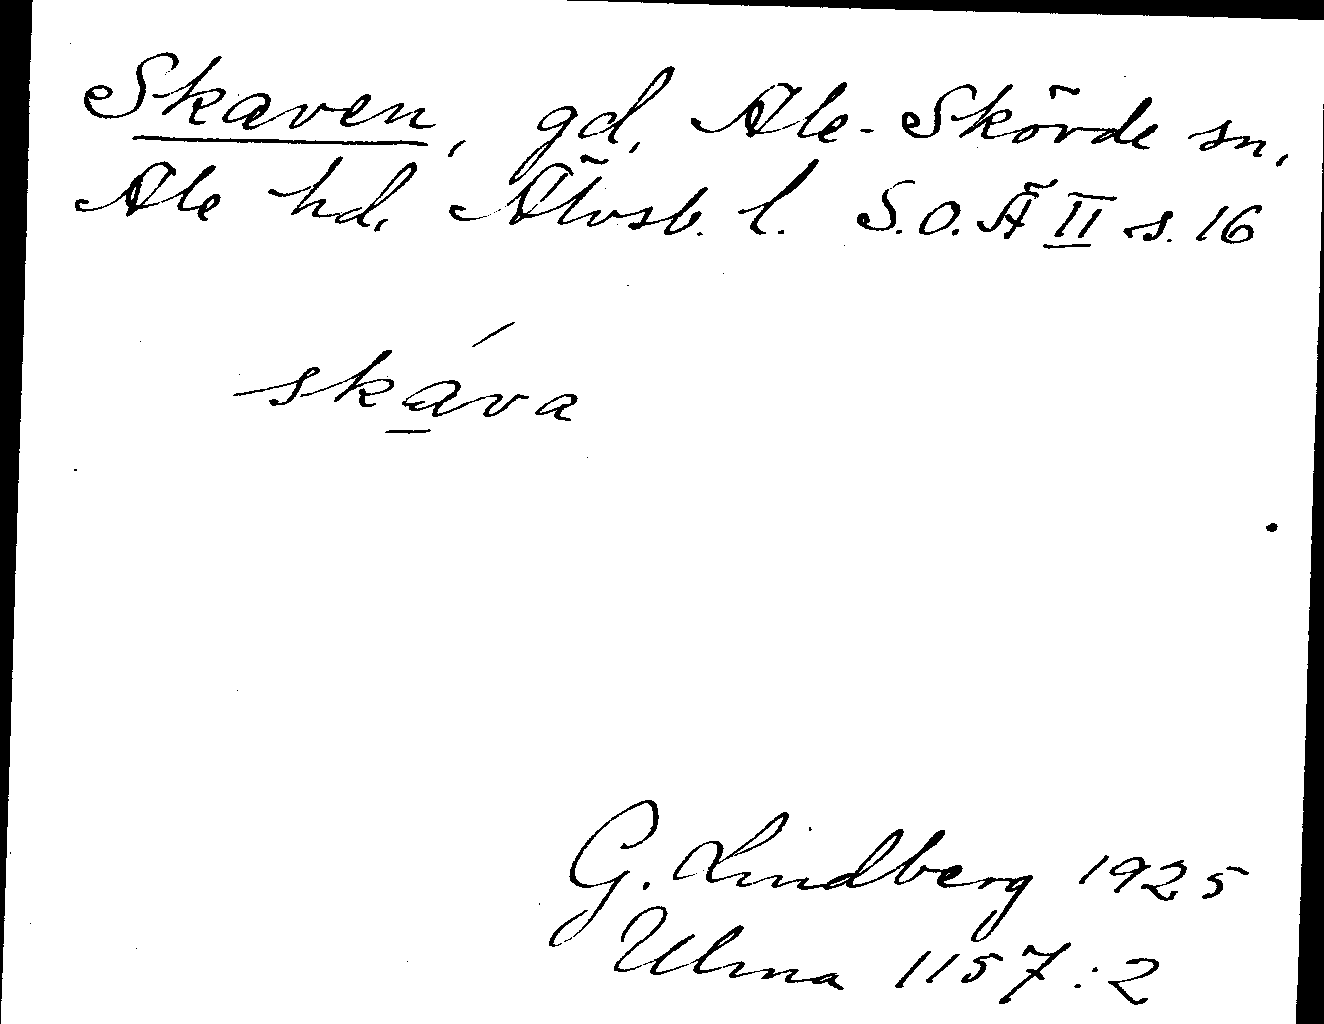 Skaven, gd, Ale-Skövde sn,
Ale hd, Älvsb. l. S.O.Ä II s. 16
skáva
G. Lindberg 1925
Ulma 1157:2